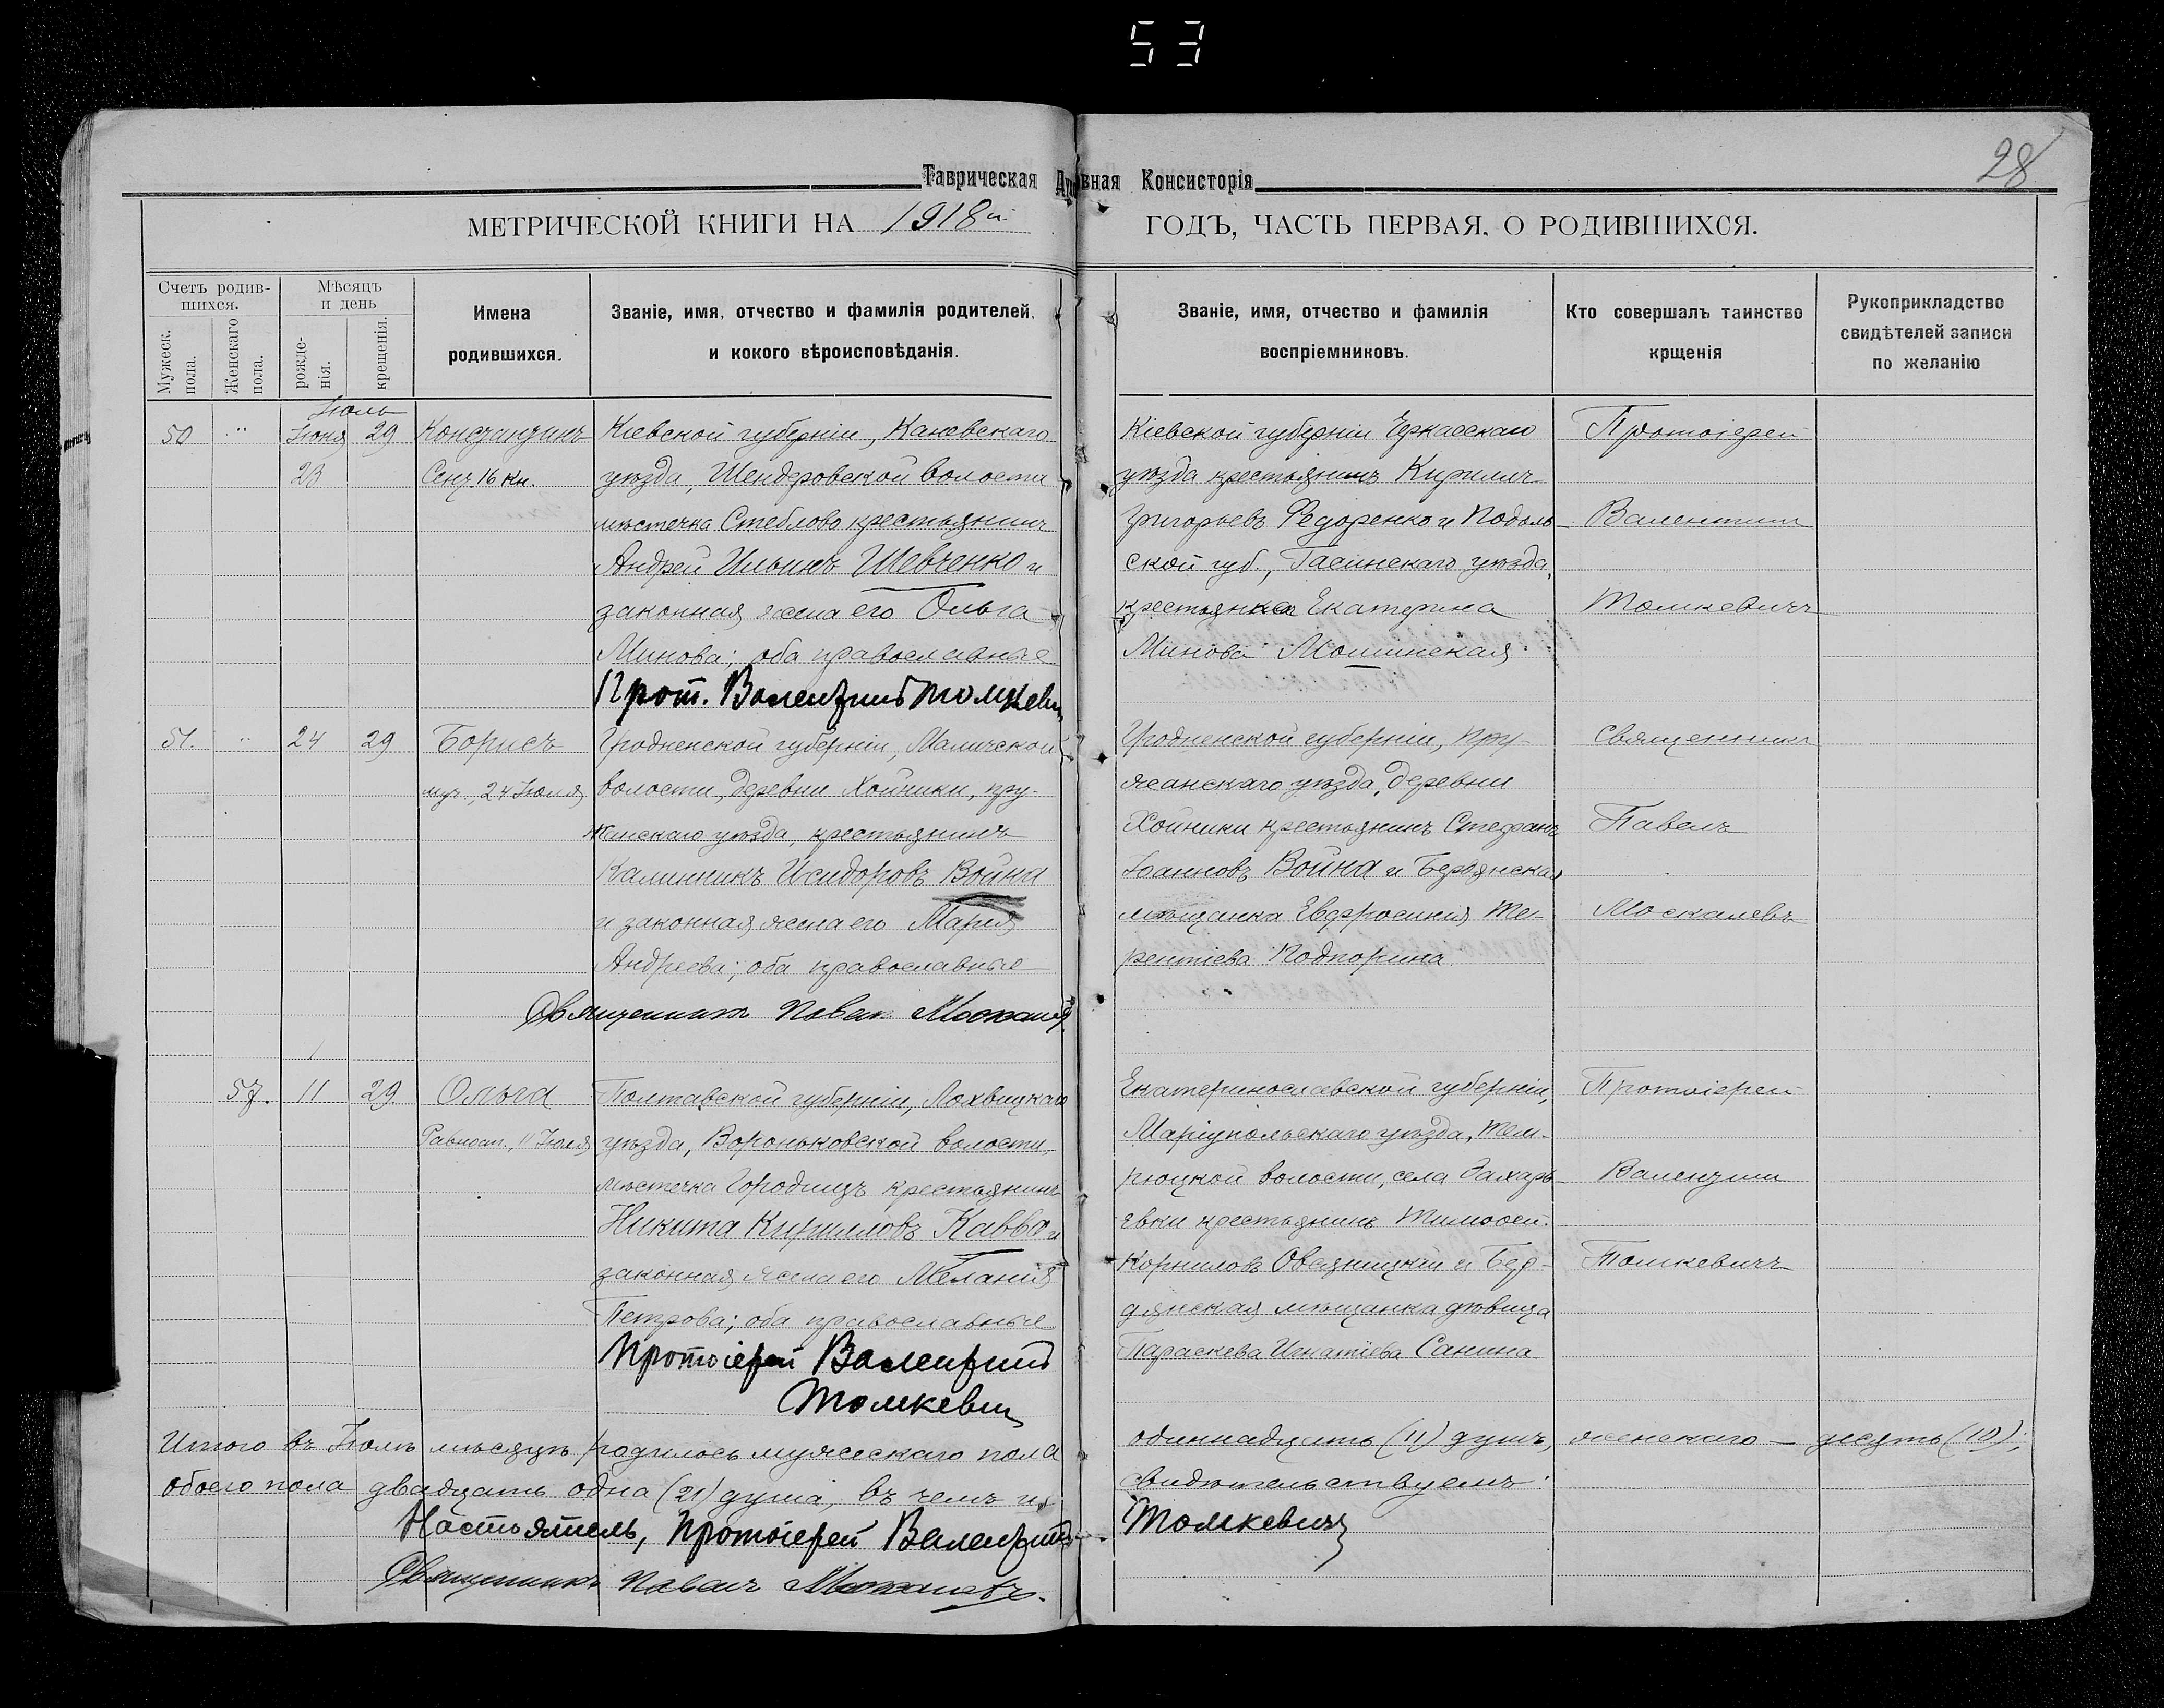 53
28
Таврическая Духовная Консисторія
МЕТРИЧЕСКОЙ КНИГИ НА 1918й ГОДЪ, ЧАСТЬ ПЕРВАЯ, О РОДИВШИХСЯ.
Счетъ родившихся.
Мужеск. пола.
Женскаго пола.
Мѣсяцъ и день
рожденія.
крещенія.
Имена родившихся.
Званіе, имя, отчество и фамилія родителей, и кокого вѣроисповѣданія.
Званіе, имя, отчество и фамилія воспріемниковъ.
Кто совершалъ таинство крщенія
Рукоприкладство свидѣтелей записи по желанію
Іюль
50 " Іюня 29 Константинъ
23 Сент 16 кн.
Кіевской губерніи, Каневскаго
уѣзда, Шендеровской волости
мѣстечка Стеблово крестьянинъ
Андрей Ильинъ Шевченко и
законная жена его Ольга
Минова; оба православные
Прот. Валентинъ Томкевич
Кіевской губерніи Черкасскаго
уѣзда крестьянинъ Кириллъ
Григорьевъ Федоренко и Подоль-
ской губ., Гасинскаго уѣзда,
крестьянка Екатерина
Минова Мошинская
Протоіерей
Валентинъ
Томкевичъ
51. " 24 29 Борисъ
муч., 24 Іюля
Гродненской губерніи, Маличской
волости, деревни Хойники, пру-
жанскаго уѣзда, крестьянинъ
Калинникъ Исидоровъ Война
и законная жена его Марія
Андреева; оба православные
Священникъ Павел Москалев
Гродненской губерніи, Пру-
жанскаго уѣзда, деревни
Хойники крестьянинъ Стефанъ
Іоанновъ Война и Бердянская
мѣщанка Евфросинія Те-
рентіева Подпорина
Священникъ
Павелъ
Москалевъ
57. 11 29 Ольга
Равноап., 11 Іюля
Полтавской губерніи, Лохвицкаго
уѣзда, Вороньковской волости,
мѣстечка Городищъ крестьянинъ
Никита Кирилловъ Кавва и
законная жена его Меланія
Петрова; оба православные
Протоіерей Валентинъ
Томкевич
Екатеринославской губерніи,
Маріупольскаго уѣзда, Тем-
рюцкой волости, села Захарь-
евки крестьянинъ Тимофей
Корниловъ Овсяницкій и Бер-
дянская мѣщанка дѣвица
Параскева Игнатіева Санина
Протоіерей
Валентинъ
Томкевичъ
Итого въ Іюлѣ мѣсяцѣ родилось мужескаго пола одиннадцать (11) душъ, женскаго — десять (10);
обоего пола двадцать одна (21) душа, въ чемъ и свидѣтельствуемъ:
Настоятель, Протоіерей Валентинъ Томкевичъ
Священникъ Павелъ Москалевъ.